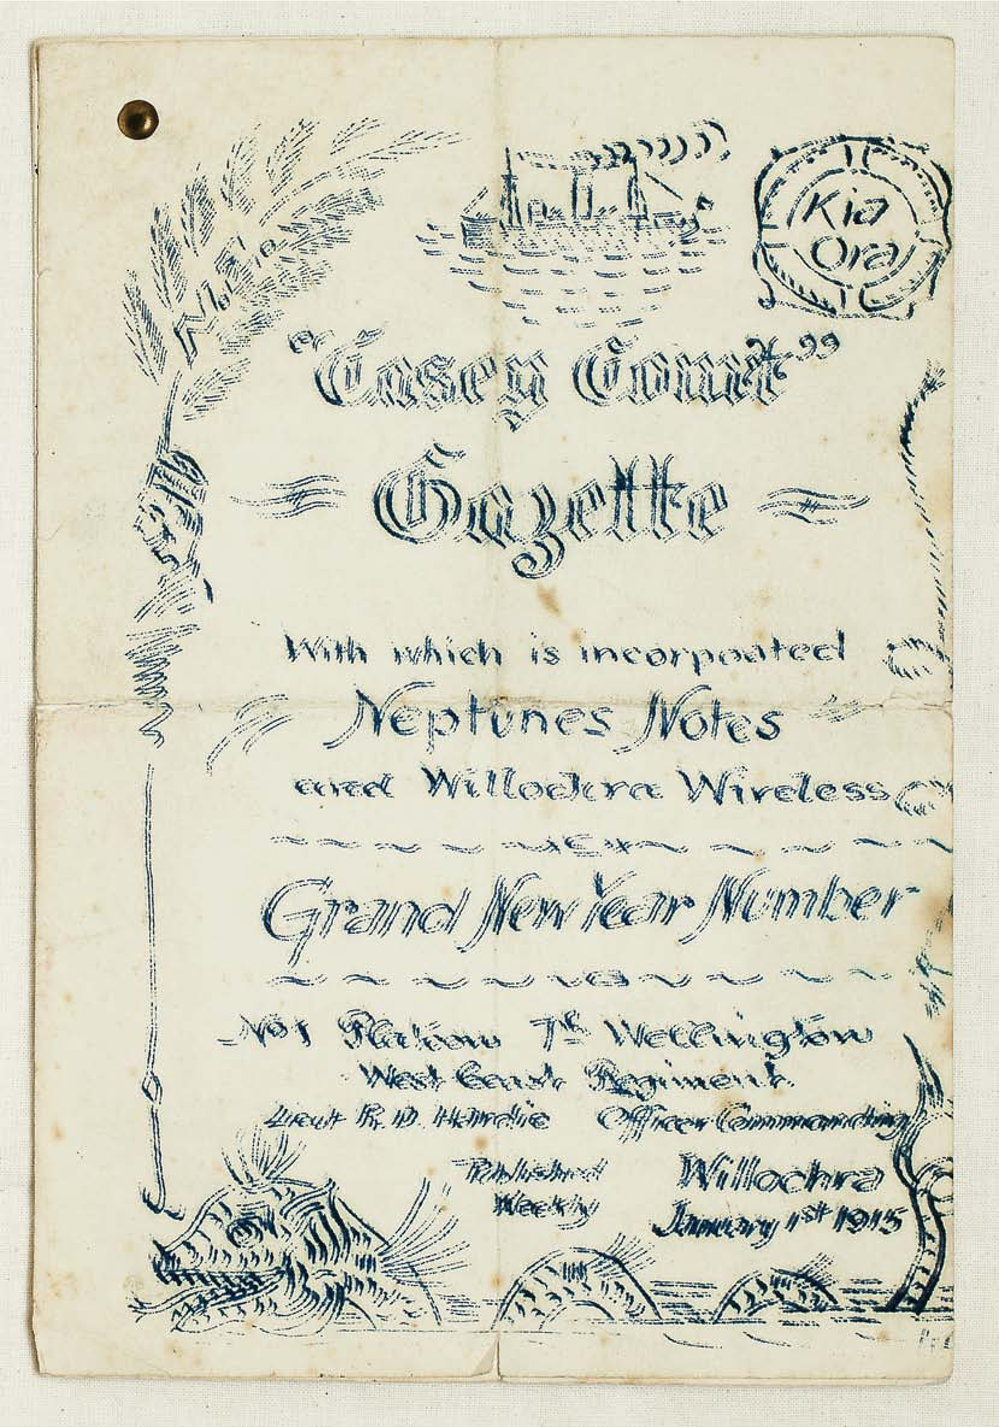 Kia
Ora
"Casey Court"
Gazette
With which is incorpoated
Neptunes Notes
and Willochra Wireless
Grand New Year Number
No 1 Platoon 7th Wellington
West Coast Regiment.
Lieut R. D. Hardie Officer Commanding
Published Willochra
Weekly January 1st 1915